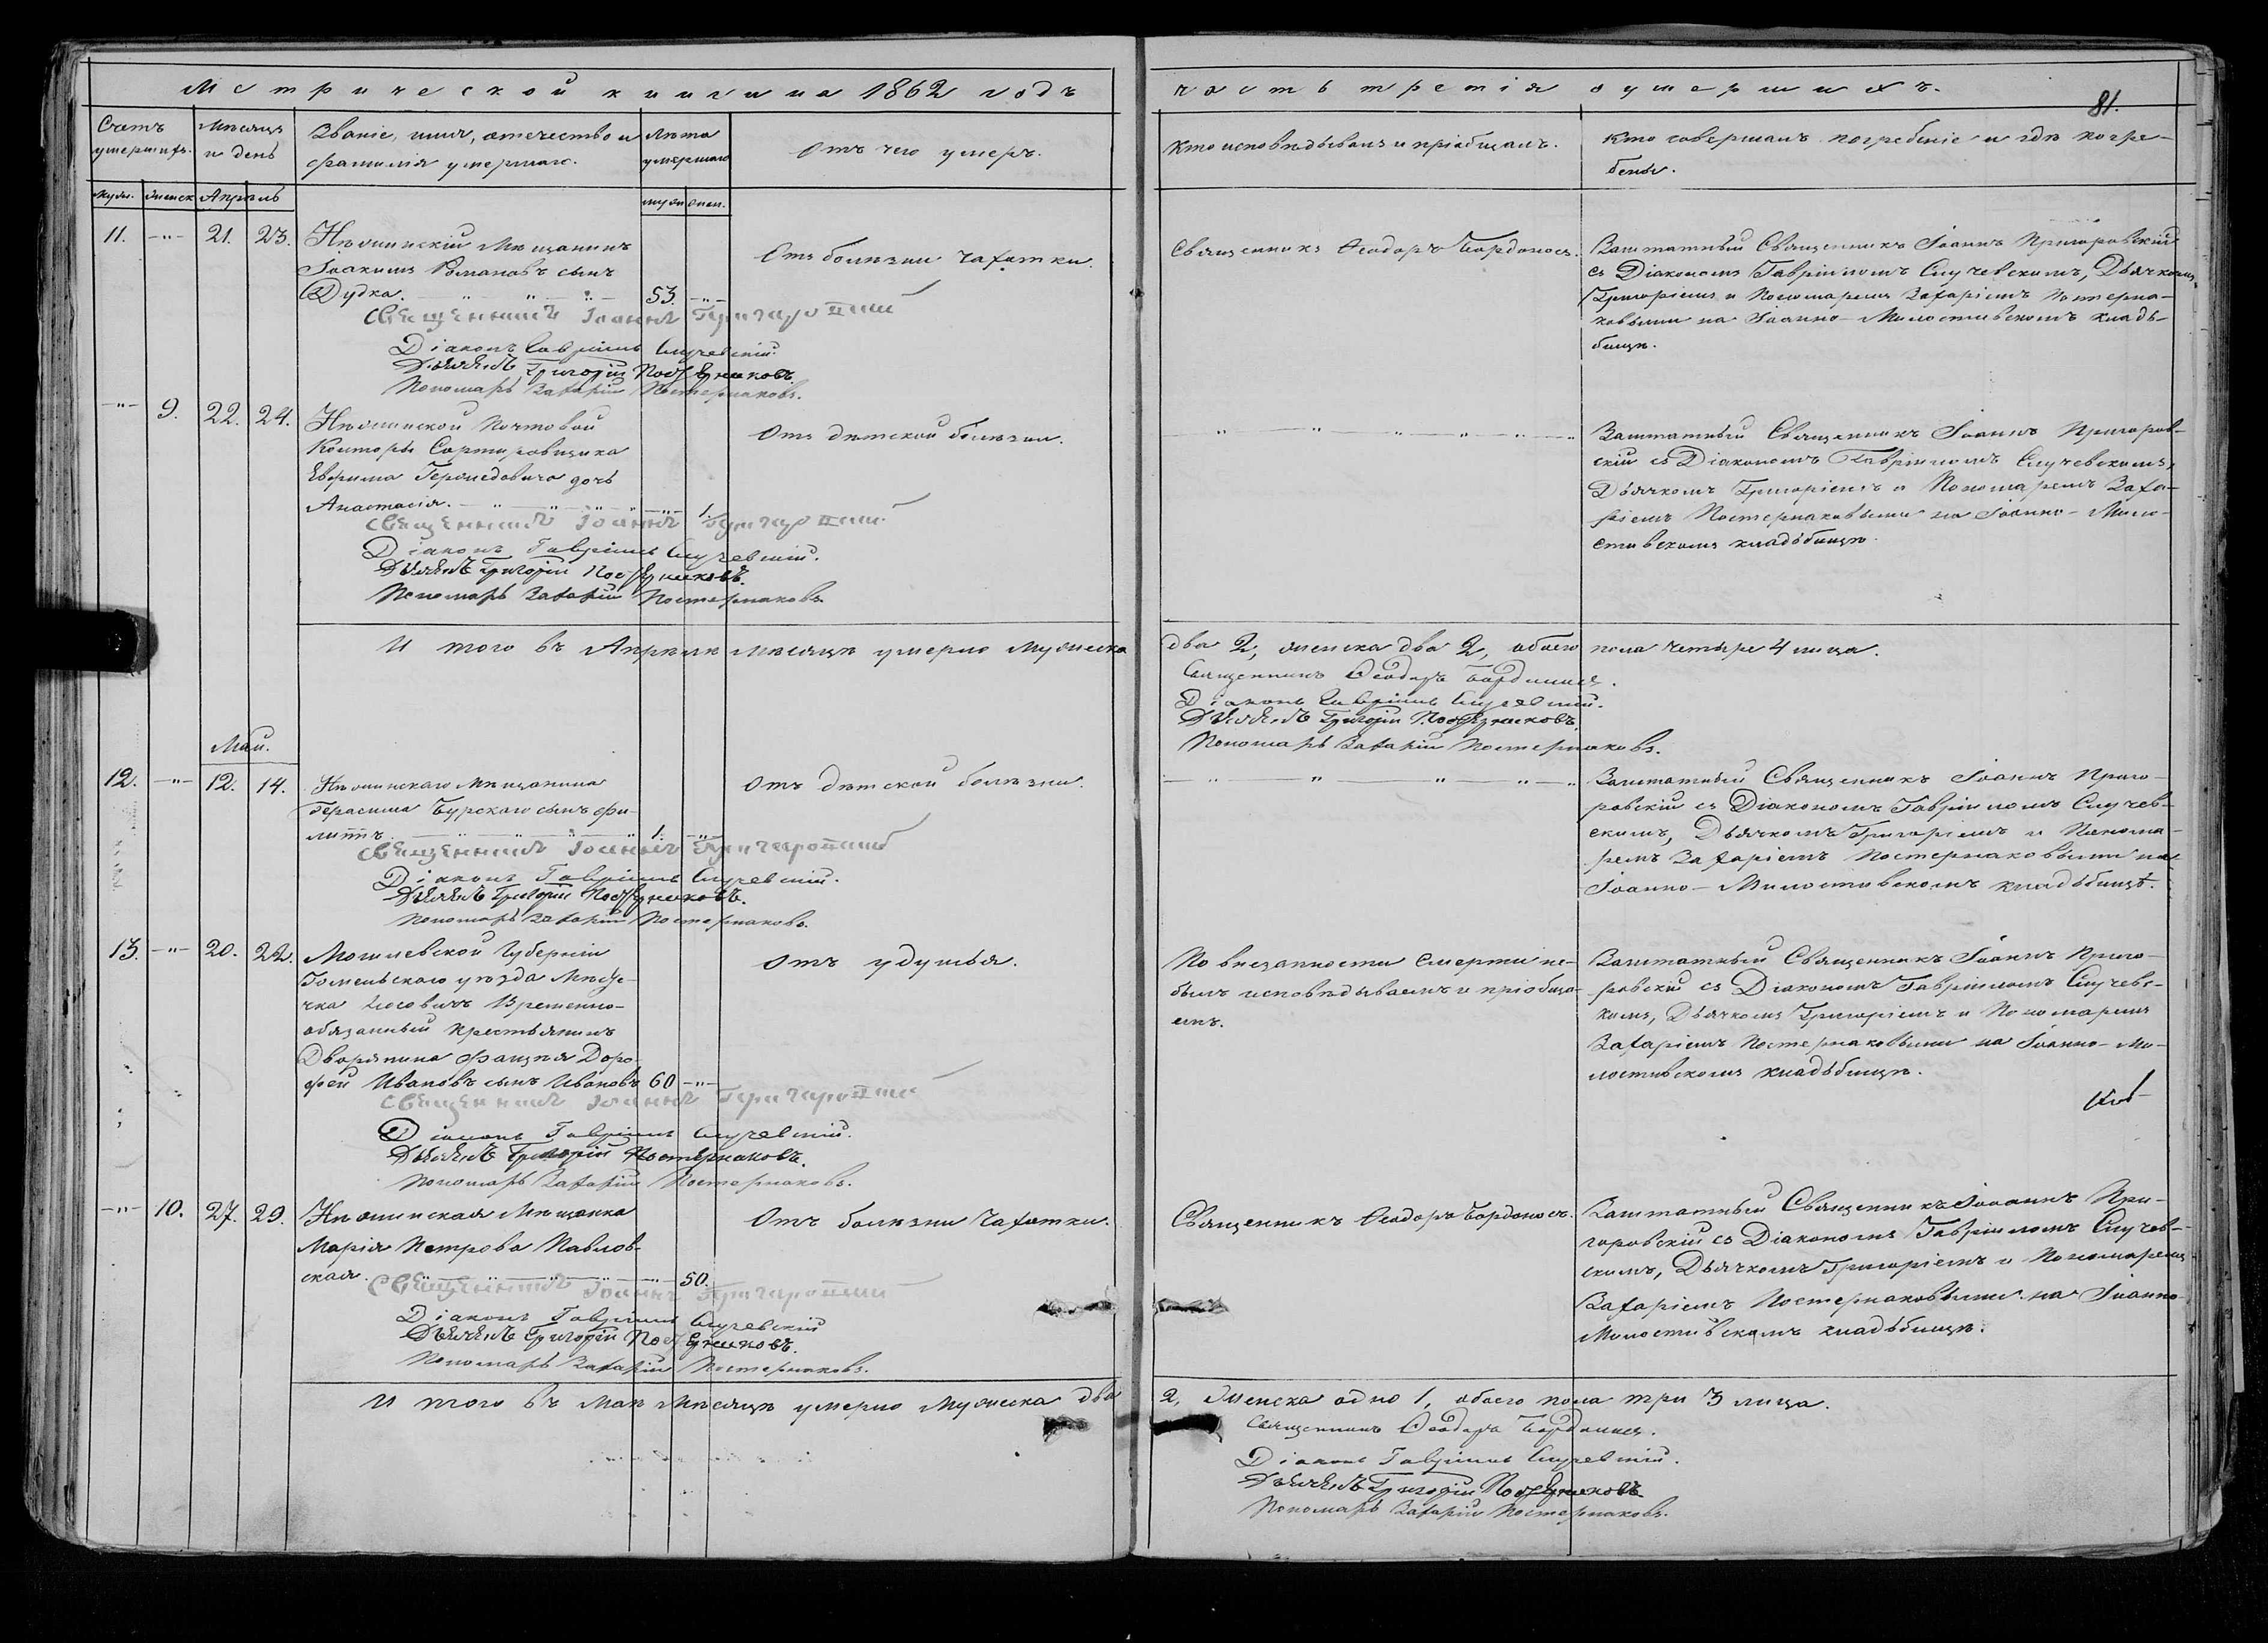 Метрической книги на 1862 годъ
часть третія о умершихъ.
81.
Счетъ умершихъ.
Мѣсяцъ и день
Званіе, имя, отечество и фамилія умершаго.
Лѣта умершаго
Отъ чего умеръ.
Кто исповѣдывалъ и пріобщалъ.
Кто совершалъ погребеніе и гдѣ погре-
бены.
муж. женск. Апрѣль
муж. жен.
11. -"- 21. 23.
Нѣжинскій Мѣщанинъ
Іоакимъ Романовъ сынъ
Дудка. 53. -"-
Отъ болѣзни чахотки.
Священникъ Іоаннъ Пригоровскій
Діаконъ Гавріилъ Случевскій.
Дьячекъ Григорій Постернаковъ.
Пономарь Захарій Постернаковъ.
Священникъ Ѳеодоръ Бордоносъ.
Заштатный Священникъ Іоаннъ Пригоровскій
съ Діакономъ Гавріиломъ Случевскимъ, Дьячкомъ
Григоріемъ и Пономаремъ Захаріемъ Постерна-
ковыми на Іоанно-Милостивскомъ кладь-
бищѣ.
-"- 9. 22. 24.
Нѣжинской Почтовой
Конторы Сортировщика
Ефима дочь
Анастасія. -"- 1.
Отъ дѣтской болѣзни.
Священникъ Іоаннъ Пригоровскій
Діаконъ Гавріилъ Случевскій.
Дьячекъ Григорій Постернаковъ.
Пономарь Захарій Постернаковъ.
Заштатный Священникъ Іоаннъ Пригоров-
скій съ Діакономъ Гавріиломъ Случевскимъ,
Дьячкомъ Григоріемъ и Пономаремъ Заха-
ріемъ Постернаковыми на Іоанно-Мило-
стивскомъ кладьбищѣ.
И того въ Апрѣлѣ мѣсяцѣ умерло Мужеска
два 2, женска два 2, обоего пола четыре 4 лица.
Священникъ Ѳеодоръ Бордоносъ.
Діаконъ Гавріилъ Случевскій.
Дьячекъ Григорій Постернаковъ.
Пономарь Захарій Постернаковъ.
Май.
12. -"- 12. 14.
Нѣжинскаго Мѣщанина
Герасима Бурскаго сынъ Фи-
липпъ. 1. -"-
Отъ дѣтской болѣзни.
Священникъ Іоаннъ Пригоровскій
Діаконъ Гавріилъ Случевскій.
Дьячекъ Григорій Постернаковъ.
Пономарь Захарій Постернаковъ.
Заштатный Священникъ Іоаннъ Приго-
ровскій съ Діакономъ Гавріиломъ Случев-
скимъ, Дьячкомъ Григоріемъ и Понома-
ремъ Захаріемъ Постернаковыми на
Іоанно-Милостивскомъ кладьбищѣ.
13. -"- 20. 22.
Могилевской Губерніи
Гомельскаго уѣзда Мѣсте-
чка Временно-
обязанный Крестьянинъ
Дворянина Доро-
фей Ивановъ сынъ Ивановъ 60 -"-
Отъ удушья.
Священникъ Іоаннъ Пригоровскій
Діаконъ Гавріилъ Случевскій.
Дьячекъ Григорій Постернаковъ.
Пономарь Захарій Постернаковъ.
По внезапности смерти не-
былъ исповѣдываемъ и пріобща-
емъ.
Заштатный Священникъ Іоаннъ Приго-
ровскій съ Діакономъ Гавріиломъ Случевс-
кимъ, Дьячкомъ Григоріемъ и Пономаремъ
Захаріемъ Постернаковыми на Іоанно-Ми-
лостивскомъ кладьбищѣ.
-"- 10. 27. 29.
Нѣжинская Мѣщанка
Марія Петрова Павлов-
ская. -"- 50.
Отъ болѣзни чахотки.
Священникъ Іоаннъ Пригоровскій
Діаконъ Гавріилъ Случевскій
Дьячекъ Григорій Постернаковъ.
Пономарь Захарій Постернаковъ.
Священникъ Ѳеодоръ Бордоносъ.
Заштатный Священникъ Іоаннъ При-
горовскій съ Діакономъ Гавріиломъ Случев-
скимъ, Дьячкомъ Григоріемъ и Пономаремъ
Захаріемъ Постернаковыми на Іоанно-
Милостивскомъ кладьбищѣ.
И того въ Маѣ Мѣсяцѣ умерло Мужеска два
2, Женска одно 1, обоего пола три 3 лица.
Священникъ Ѳеодоръ Бордоносъ.
Діаконъ Гавріилъ Случевскій.
Дьячекъ Григорій Постернаковъ.
Пономарь Захарій Постернаковъ.